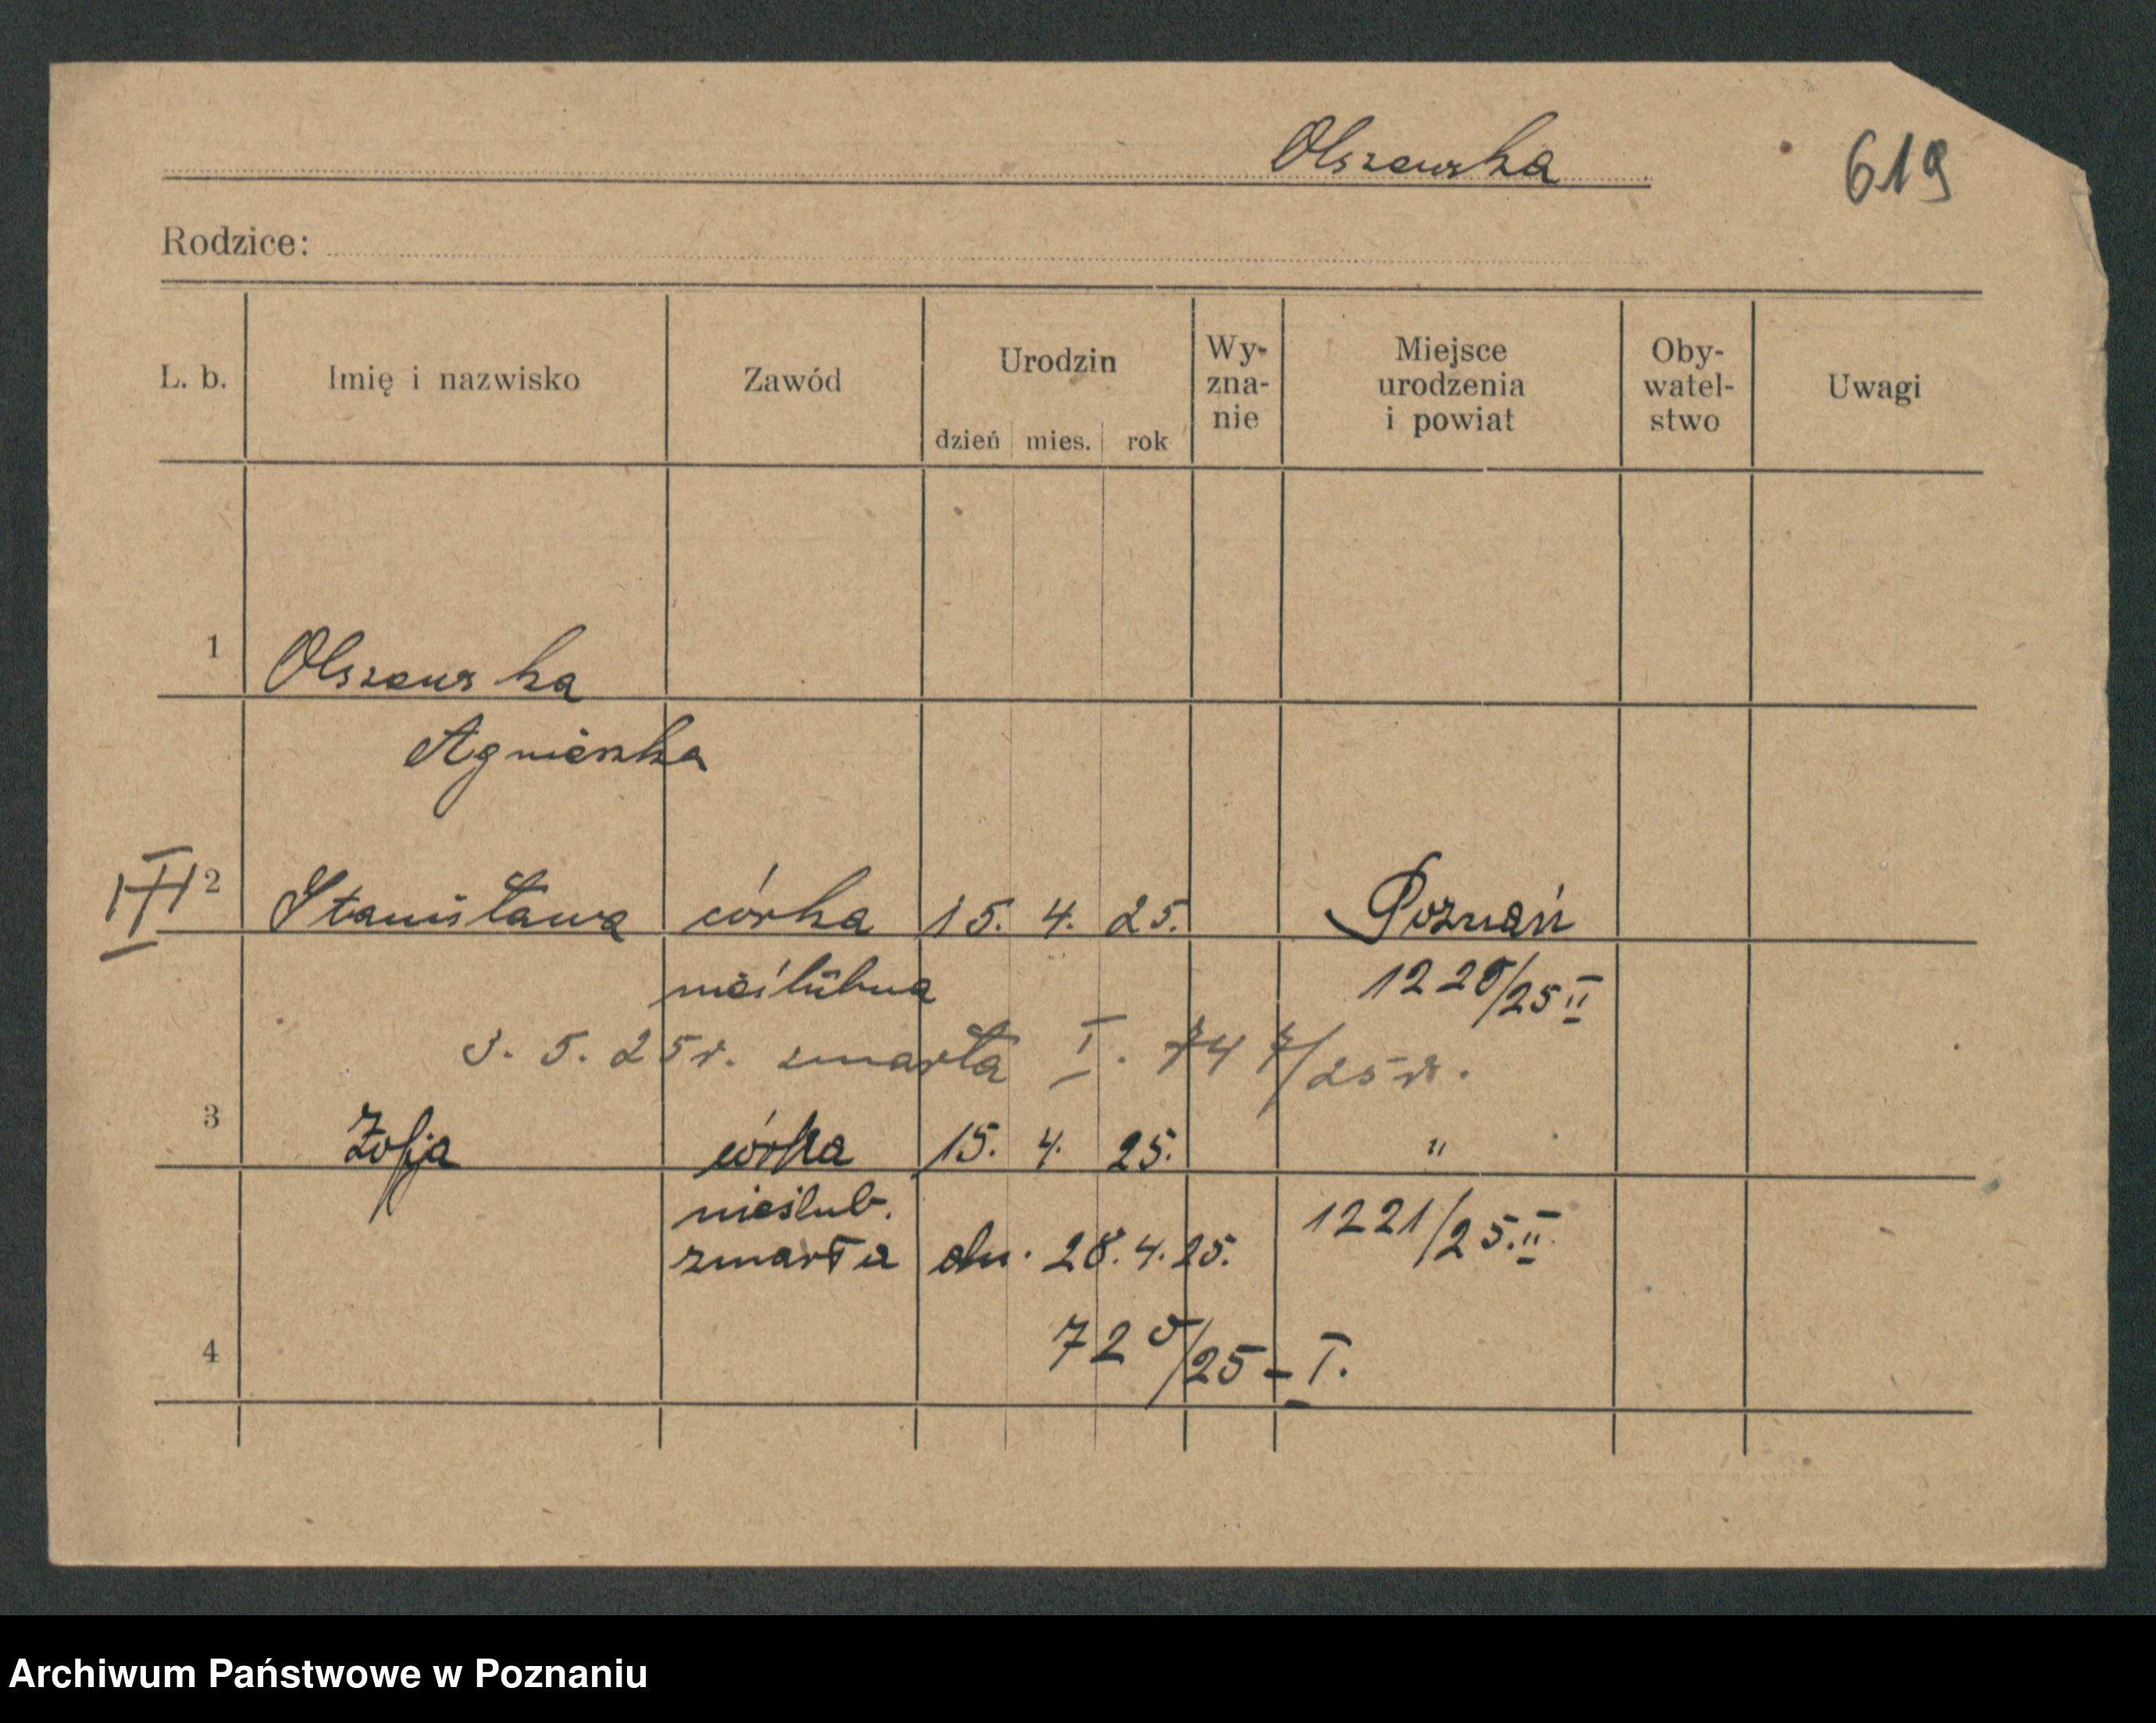 Olszewska
619
Rodzice:
L. b. Imię i nazwisko Zawód Urodzin dzień mies. rok Wy-zna-nie Miejsce urodzenia i powiat Oby-watel-stwo Uwagi
1 Olszewska
Agnieszka
2 Stanisława córka 15. 4. 25. Poznań
nieślubna 1220/25 II
3. 5. 25 r. zmarła I. 747/25 r.
3 Zofja córka 15. 4. 25. "
nieślub. 1221/25. II
zmarła dn. 28. 4. 25.
4 720/25 - I.
Archiwum Państwowe w Poznaniu